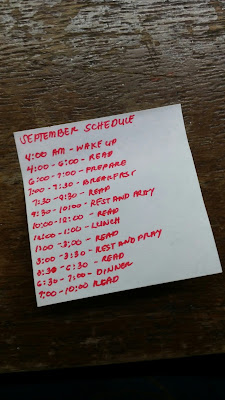 SEPTEMBER SCHEDULE
4:00 AM - WAKE UP
4:00 - 6:00 - READ
6:00 - 7:00 - PREPARE
7:00 - 7:30 - BREAKFAST
7:30 - 9:30 - READ
9:30 - 10:00 - REST AND PRAY
10:00 - 12:00 - READ
12:00 - 1:00 - LUNCH
1:00 - 3:00 - READ
3:00 - 3:30 - REST AND PRAY
3:30 - 6:30 - READ
6:30 - 7:00 - DINNER
7:00 - 10:00 READ